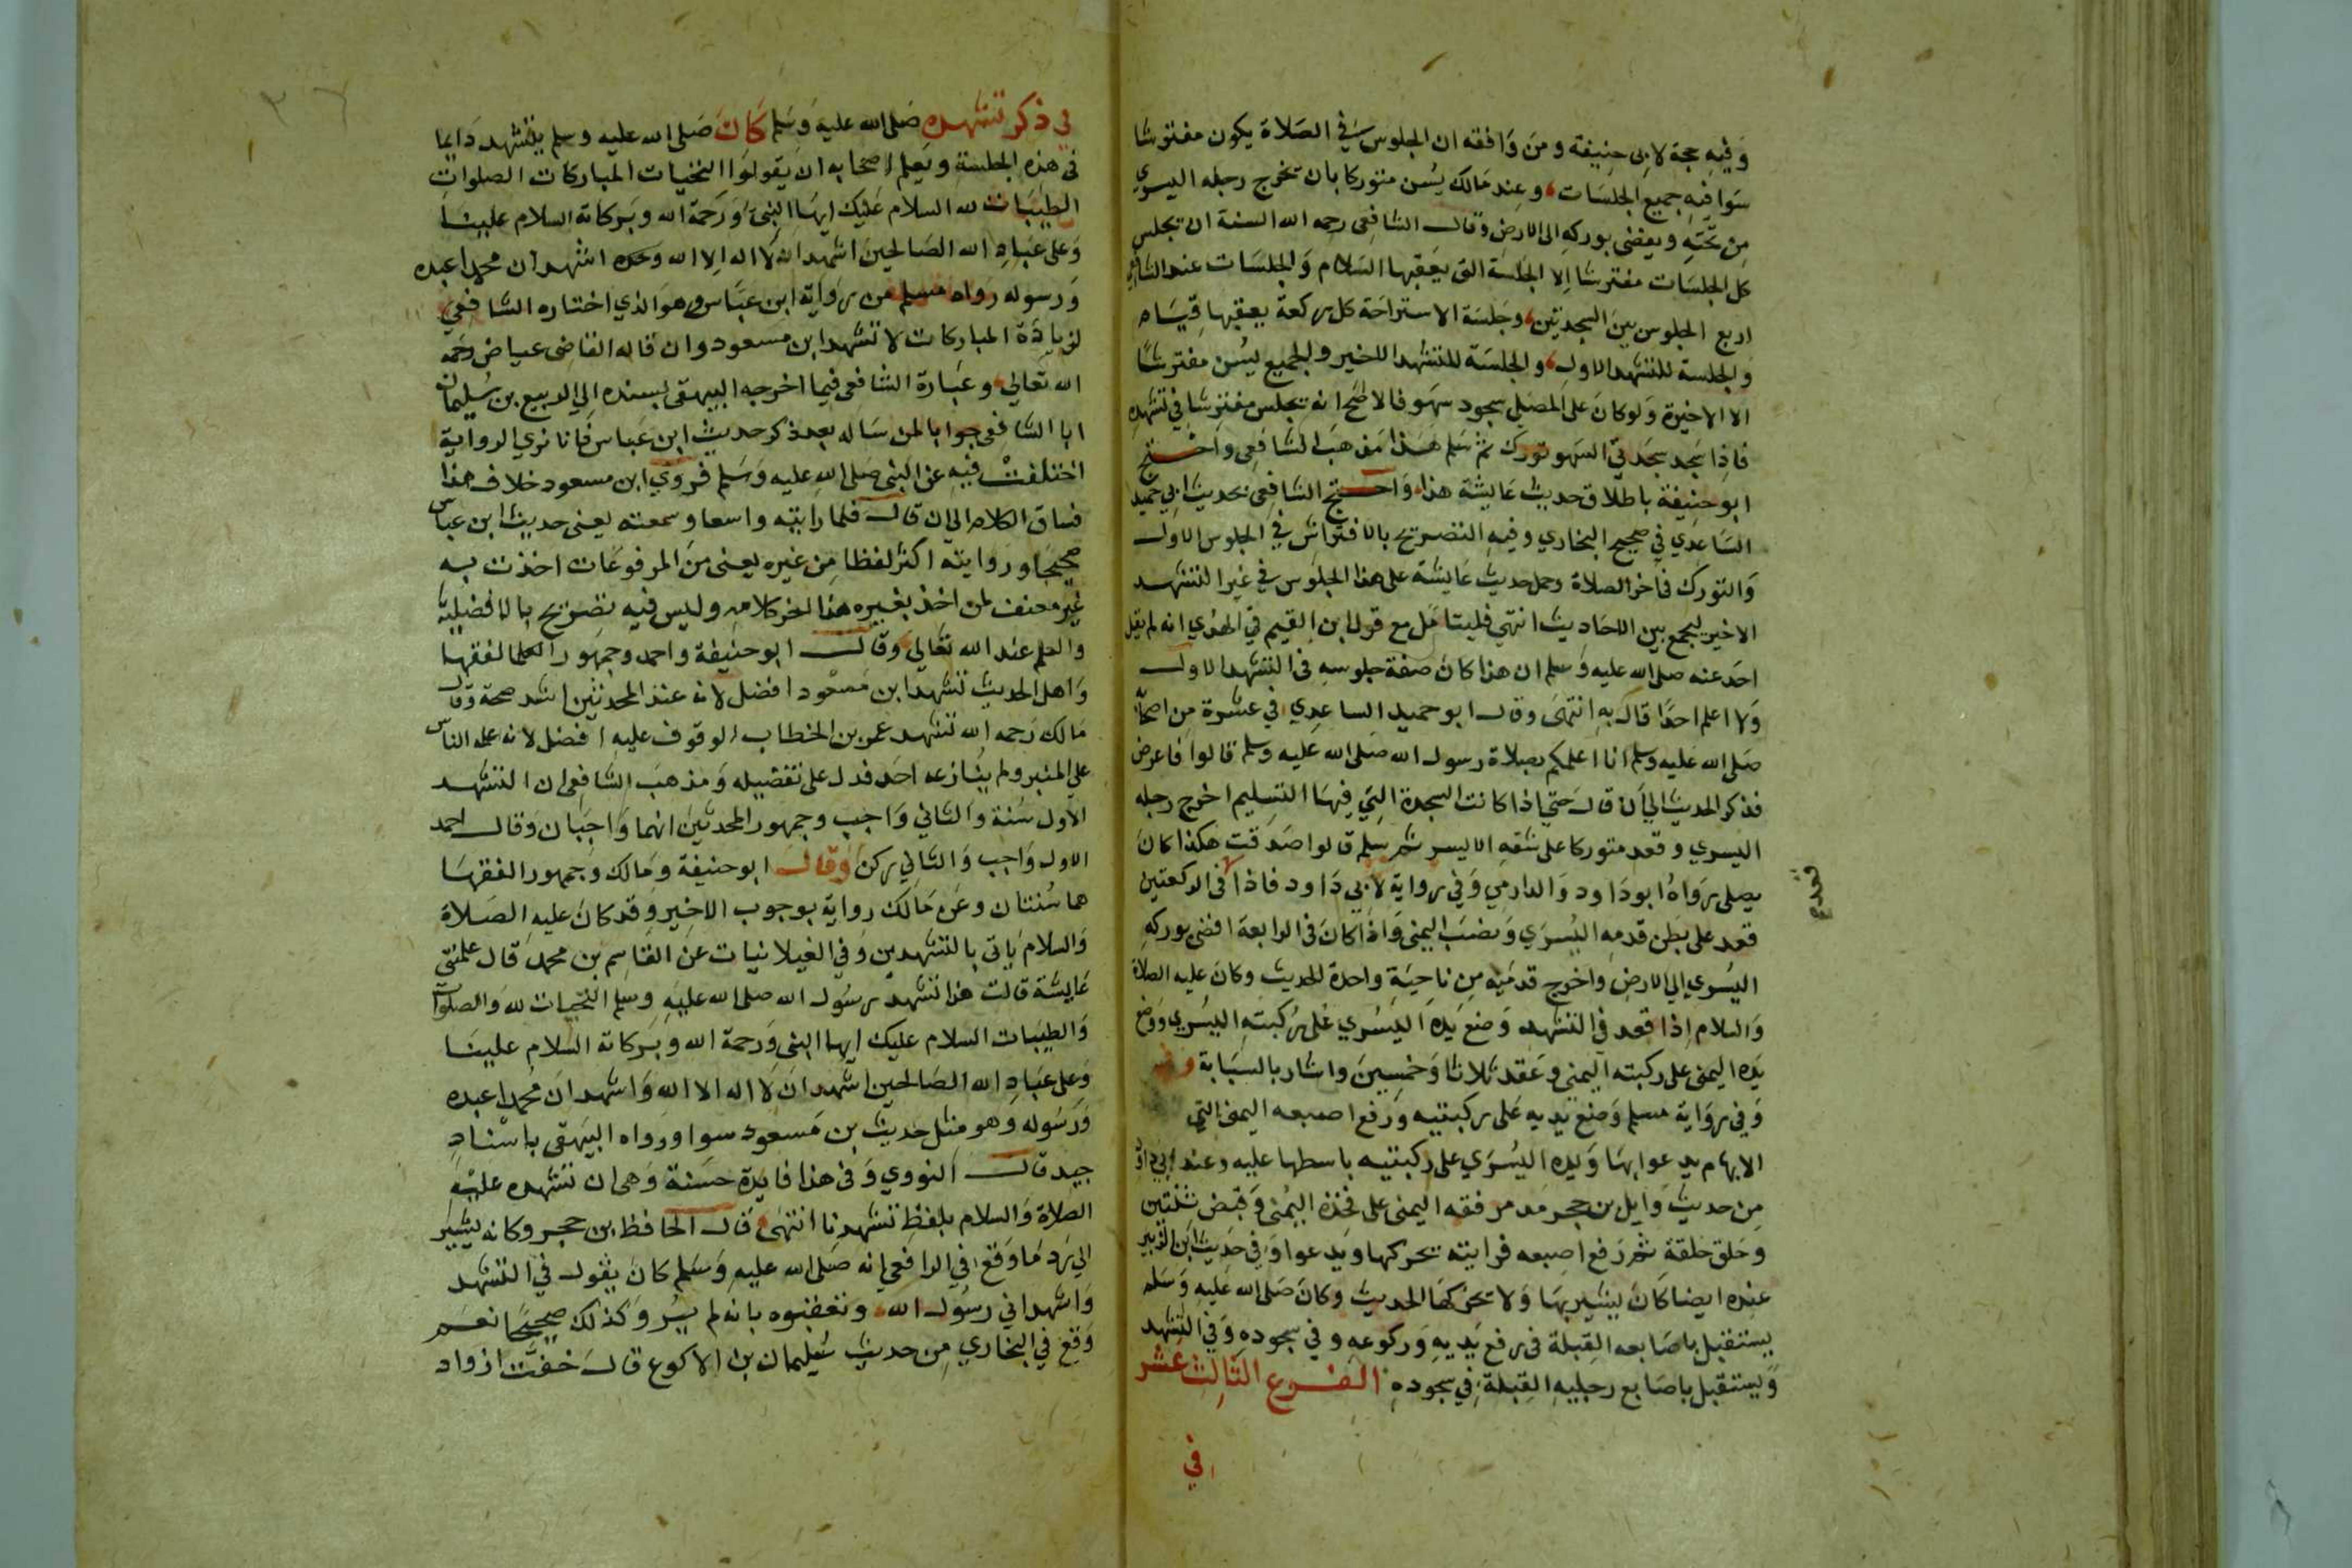 وفيه حجة لابى حنيفة ومن وافقه ان الجلوس في الصلاة يكون مفترشا
سوا فيه جميع الجلسات وعند مالك يسن متوركا بان يخرج رجله اليسري
من تحته ويفضى بوركه الى الارض وقال الشافعى رحمه الله السنة ان يجلس
كل الجلسات مفترشا الا الجلسة التى يعقبها السلام والجلسات عند الشافعي
اربع الجلوس بين السجدتين وجلسة الاستراحة كل ركعة يعقبها قيام
والجلسة للتشهد الاول والجلسة للتشهد الاخير والجميع يسن مفترشا
الا الاخيرة ولو كان على المصلى سجود سهو فالاصح انه يجلس مفترشا في تشهده
فاذا سجد سجدتي السهو تورك ثم سلم هذا مذهب الشافعى واحتج
ابو حنيفة باطلاق حديث عايشة هذا واحتج الشافعى بحديث ابي حميد
الساعدي في صحيح البخاري وفيه التصريح بالافتراش في الجلوس الاول
والتورك في اخر الصلاة وحمل حديث عايشة على هذا الجلوس في غير التشهد
الاخير ليجمع بين الاحاديث انتهى فليتامل مع قول ابن القيم في الهدي انه لم ينقل
احد عنه صلى الله عليه وسلم ان هذا كان صفة جلوسه في التشهد الاول
ولا اعلم احدا قال به انتهى وقال ابو حميد الساعدي في عشرة من اصحابه
صلى الله عليه وسلم انا اعلمكم بصلاة رسول الله صلى الله عليه وسلم قالوا فاعرض
فذكر الحديث الى ان قال حتى اذا كانت السجدة التي فيها التسليم اخرج رجله
اليسري وقعد متوركا على شقه الايسر ثم سلم قالوا صدقت هكذا كان
يصلى رواه ابو داود والدارمي وفي رواية لابى داود فاذا فى الركعتين
قعد
قعد على بطن قدمه اليسري ونصب اليمنى واذا كان في الرابعة افضى بوركه
اليسري الى الارض واخرج قدميه من ناحية واحدة الحديث وكان عليه الصلاة
والسلام اذا قعد في التشهد وضع يده اليسري على ركبته اليسري ووضع
يده اليمنى على ركبته اليمنى وعقد ثلاثا وخمسين واشار بالسبابة
وفي رواية مسلم وضع يديه على ركبتيه ورفع اصبعه اليمنى التي
الابهام يدعوا بها ويده اليسري على ركبتيه باسطها عليه وعند ابي داود
من حديث وايل بن حجر مد مرفقه اليمنى على فخذه اليمنى وقبض ثنتين
وحلق حلقة ثم رفع اصبعه فرايته يحركها ويدعوا وفي حديث ابن الزبير
عنده ايضا كان يشير بها ولا يحركها الحديث وكان صلى الله عليه وسلم
يستقبل باصابعه القبلة في رفع يديه وركوعه وفي سجوده وفي التشهد
ويستقبل باصابع رجليه القبلة في سجوده الفرع الثالث عشر
في
في ذكر تشهده صلى الله عليه وسلم كان صلى الله عليه وسلم يتشهد دايما
في هذه الجلسة ويعلم اصحابه ان يقولوا التحيات المباركات الصلوات
الطيبات لله السلام عليك ايها النبى ورحمة الله وبركاته السلام علينا
وعلى عباد الله الصالحين اشهد ان لا اله الا الله وحده اشهد ان محمدا عبده
ورسوله رواه مسلم من رواية ابن عباس وهو الذي اختاره الشافعي
لزيادة المباركات لا تشهد ابن مسعود وان قاله القاضى عياض رحمه
الله تعالى وعبارة الشافعى فيما اخرجه البيهقى بسنده الى الربيع بن سليمان
انا الشافعى جوابا لمن ساله بعد ذكر حديث ابن عباس فانا نري الرواية
اختلفت فيه عن النبى صلى الله عليه وسلم فروي ابن مسعود خلاف هذا
فساق الكلام الى ان قال فلما رايته واسعا وسمعته يعنى حديث ابن عباس
صحيحا ورايته اكثر لفظا من غيره يعنى من المرفوعات اخذت به
غير معنف لمن اخذ بغيره هذا اخر كلامه وليس فيه تصريح بالافضلية
والعلم عند الله تعالى وقال ابو حنيفة واحمد وجمهور العلما الفقها
واهل الحديث تشهد ابن مسعود افضل لانه عند المحدثين اشد صحة وقال
مالك رحمه الله تشهد عمر بن الخطاب الوقوف عليه افضل لانه علمه الناس
على المنبر ولم ينازعه احد فدل على تفضيله ومذهب الشافعى ان التشهد
الاول سنة والثاني واجب وجمهور المحدثين انهما واجبان وقال احمد
الاول واجب والثاني ركن وقال ابو حنيفة ومالك وجمهور الفقها
هما سنتان وعن مالك رواية بوجوب الاخير وقد كان عليه الصلاة
والسلام ياتى بالتشهدين وفي الغيلانيات عن القاسم بن محمد قال علمتنى
عايشة قالت هذا تشهد رسول الله صلى الله عليه وسلم التحيات لله والصلوات
والطيبات السلام عليك ايها النبى ورحمة الله وبركاته السلام علينا
وعلى عباد الله الصالحين اشهد ان لا اله الا الله واشهد ان محمدا عبده
ورسوله وهو مثل حديث بن مسعود سوا ورواه البيهقى باسناد
جيد قال النووي وفى هذا فايدة حسنة وهى ان تشهده عليه
الصلاة والسلام بلفظ تشهدنا انتهى قال الحافظ بن حجر وكانه يشير
الى رد ما وقع في الرافعى انه صلى الله عليه وسلم كان يقول في التشهد
واشهد اني رسول الله وتعقبوه بانه لم يرو كذلك صحيحا نعم
وقع في البخاري من حديث سليمان بن الاكوع قال خفت ازواد